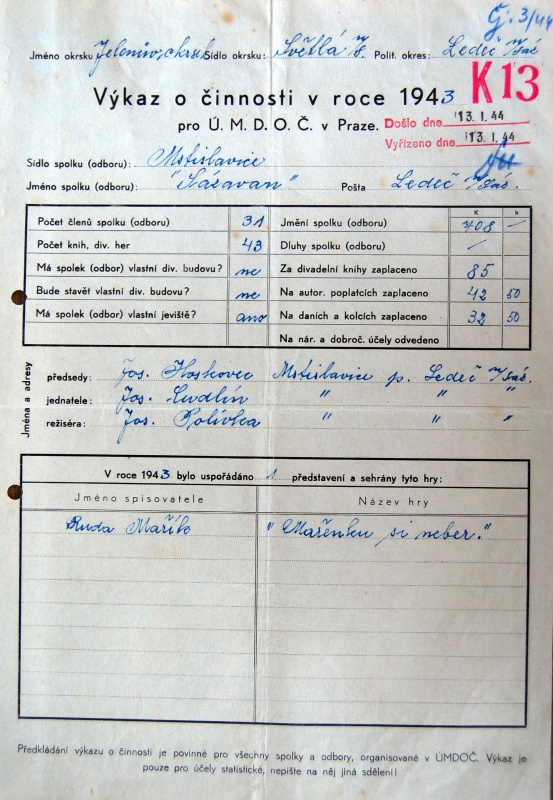 Čj. 3/44
Jméno okrsku Sídlo okrsku: Světlá n/S. Polit. okres: Ledeč n/Sáz.
K13
Výkaz o činnosti v roce 1943
pro Ú. M. D. O. Č. v Praze.
Došlo dne 13. I. 44
Vyřízeno dne 13. I. 44
Sídlo spolku (odboru): Mstislavice
Jméno spolku (odboru): "Sázavan" Pošta Ledeč n/Sáz.
K h
Počet členů spolku (odboru) 31 Jmění spolku (odboru) 708 —
Počet knih, div. her 43 Dluhy spolku (odboru) /
Má spolek (odbor) vlastní div. budovu? ne Za divadelní knihy zaplaceno 85
Bude stavět vlastní div. budovu? ne Na autor. poplatcích zaplaceno 42 50
Má spolek (odbor) vlastní jeviště? ano Na daních a kolcích zaplaceno 32 50
Na nár. a dobroč. účely odvedeno
Jména a adresy
předsedy: Jos. Hoskovec Mstislavice p. Ledeč n/Sáz.
jednatele: Jos. " " "
režiséra: Jos. Polívka " " "
V roce 1943 bylo uspořádáno 1 představení a sehrány tyto hry:
Jméno spisovatele Název hry
Ruda Mařík "Mařenku si neber."
Předkládání výkazu o činnosti je povinné pro všechny spolky a odbory, organisované v ÚMDOČ. Výkaz je
pouze pro účely statistické, nepište na něj jiná sdělení!